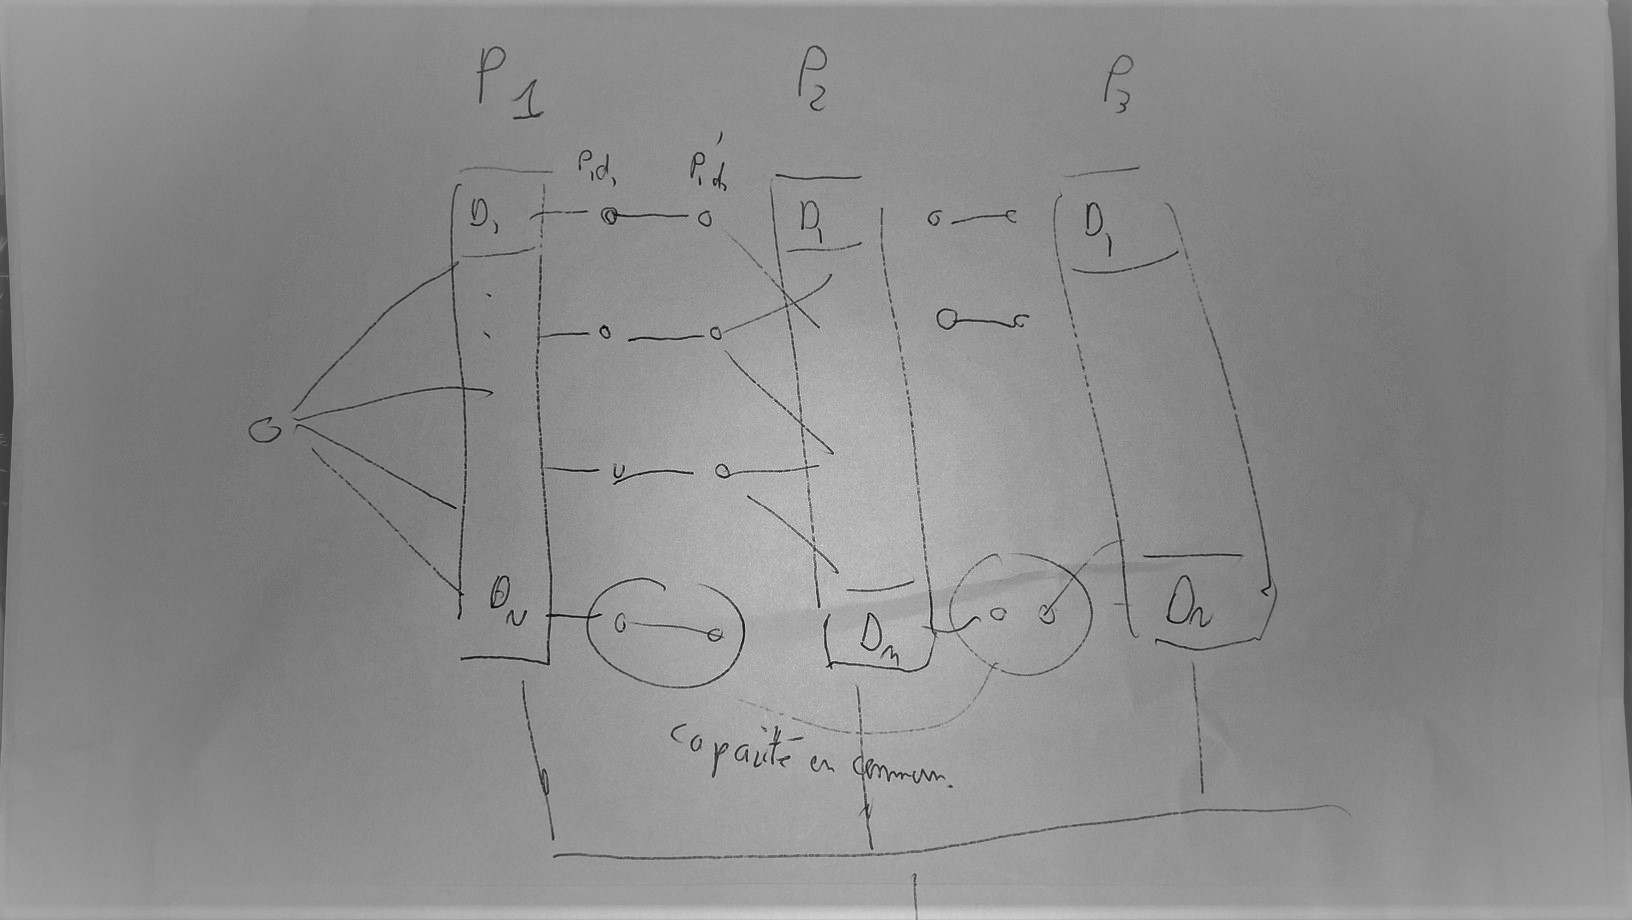 P1 P2 P3
P1d1 P'1d1
D1 D1 D1
DN Dn Dn
Capacité en commun.